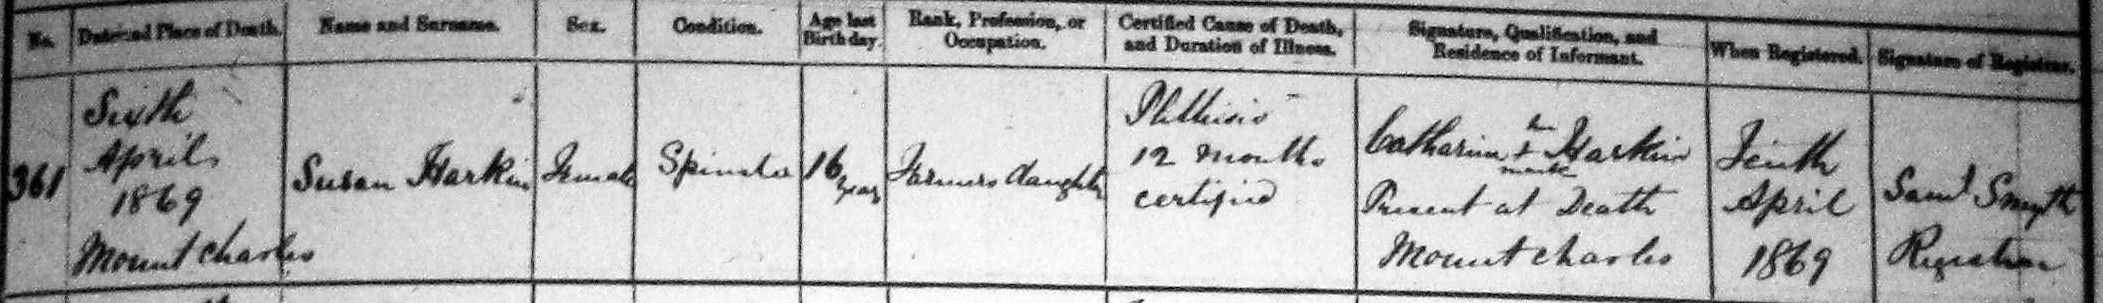 No.
Date and Place of Death.
Name and Surname.
Sex.
Condition.
Age last
Birthday.
Rank, Profession, or
Occupation.
Certified Cause of Death,
and Duration of Illness.
Signature, Qualification, and
Residence of Informant.
When Registered.
Signature of Registrar.
361
Sixth
April
1869
Mountcharles
Susan Harkin
Female
Spinster
16
years
Farmers daughter
Phthisis
12 months
certified
Catharine her x mark Harkin
Present at Death
Mountcharles
Tenth
April
1869
Saml Smyth
Registrar